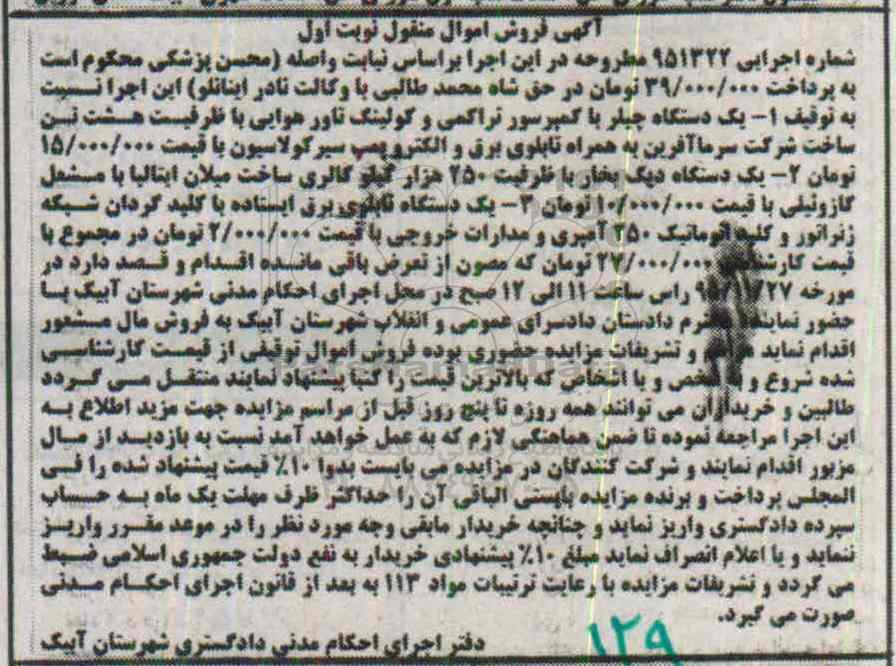 آگهی فروش اموال منقول نوبت اول
شماره اجرایی ۹۵۱۳۲۲ مطروحه در این اجرا براساس نیابت واصله (محسن پزشکی محکوم است
به پرداخت ۳۹/۰۰۰/۰۰۰ تومان در حق شاه محمد طالبی با وکالت نادر اینانلو) این اجرا نسبت
به توقیف ۱- یک دستگاه چیلر با کمپرسور تراکمی و کولینگ تاور هوایی با ظرفیت هشت تن
ساخت شرکت سرماآفرین به همراه تابلوی برق و الکترو پمپ سیرکولاسیون با قیمت ۱۵/۰۰۰/۰۰۰
تومان ۲- یک دستگاه دیگ بخار با ظرفیت ۲۵۰ هزار کیلو کالری ساخت میلان ایتالیا با مشعل
گازوئیلی با قیمت ۱۰/۰۰۰/۰۰۰ تومان ۳- یک دستگاه تابلوی برق ایستاده با کلید گردان شبکه
ژنراتور و کلید اتوماتیک ۲۵۰ آمپری و مدارات خروجی با قیمت ۲/۰۰۰/۰۰۰ تومان در مجموع با
قیمت ۲۷/۰۰۰/۰۰۰ تومان که مصون از تعرض باقی مانده اقدام و قصد دارد در
مورخه راس ساعت ۱۱ الی ۱۲ صبح در محل اجرای احکام مدنی شهرستان آبیک با
حضور دادستان دادسرای عمومی و انقلاب شهرستان آبیک به فروش مال مشعور
اقدام نماید و تشریفات مزایده حضوری بوده فروش اموال توقیفی از قیمت کارشناسی
شده شروع و و یا اشخاص که بالاترین قیمت را کتبا پیشنهاد نمایند منتقل می گردد
طالبین و خریداران می توانند همه روزه تا پنج روز قبل از مراسم مزایده جهت مزید اطلاع به
این اجرا مراجعه نموده تا ضمن هماهنگی لازم که به عمل خواهد آمد نسبت به بازدید از مال
مزبور اقدام نمایند و شرکت کنندگان در مزایده می بایست بدوا ۱۰٪ قیمت پیشنهاد شده را فی
المجلس پرداخت و برنده مزایده بایستی الباقی آن را حداکثر ظرف مهلت یک ماه به حساب
سپرده دادگستری واریز نماید و چنانچه خریدار مابقی وجه مورد نظر را در موعد مقرر واریز
ننماید و یا اعلام انصراف نماید مبلغ ۱۰٪ پیشنهادی خریدار به نفع دولت جمهوری اسلامی ضبط
می گردد و تشریفات مزایده با رعایت ترتیبات مواد ۱۱۳ به بعد از قانون اجرای احکام مدنی
صورت می گیرد.
دفتر اجرای احکام مدنی دادگستری شهرستان آبیک
۱۲۹